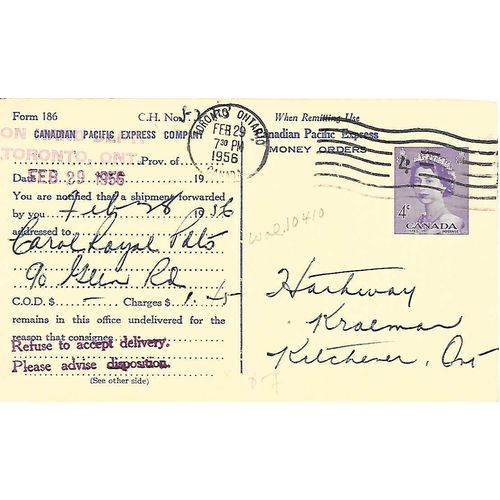 Form 186 C.H. No.
ON HAND DEPT.
CANADIAN PACIFIC EXPRESS COMPANY
TORONTO, ONT. Prov. of
Date FEB 29 1956 19
You are notified that a shipment forwarded
by you Feb 28 1956
addressed to
Carol Royal Pats
90 Glen Rd
C.O.D. $ — Charges $ 1.45
remains in this office undelivered for the
reason that consignee
Refuse to accept delivery.
Please advise disposition.
(See other side)
TORONTO ONTARIO
FEB 29
7 30 PM
1956
CANADA
When Remitting Use
Canadian Pacific Express
MONEY ORDERS
4
4¢
CANADA
10410
Kraemer
Kitchener, Ont